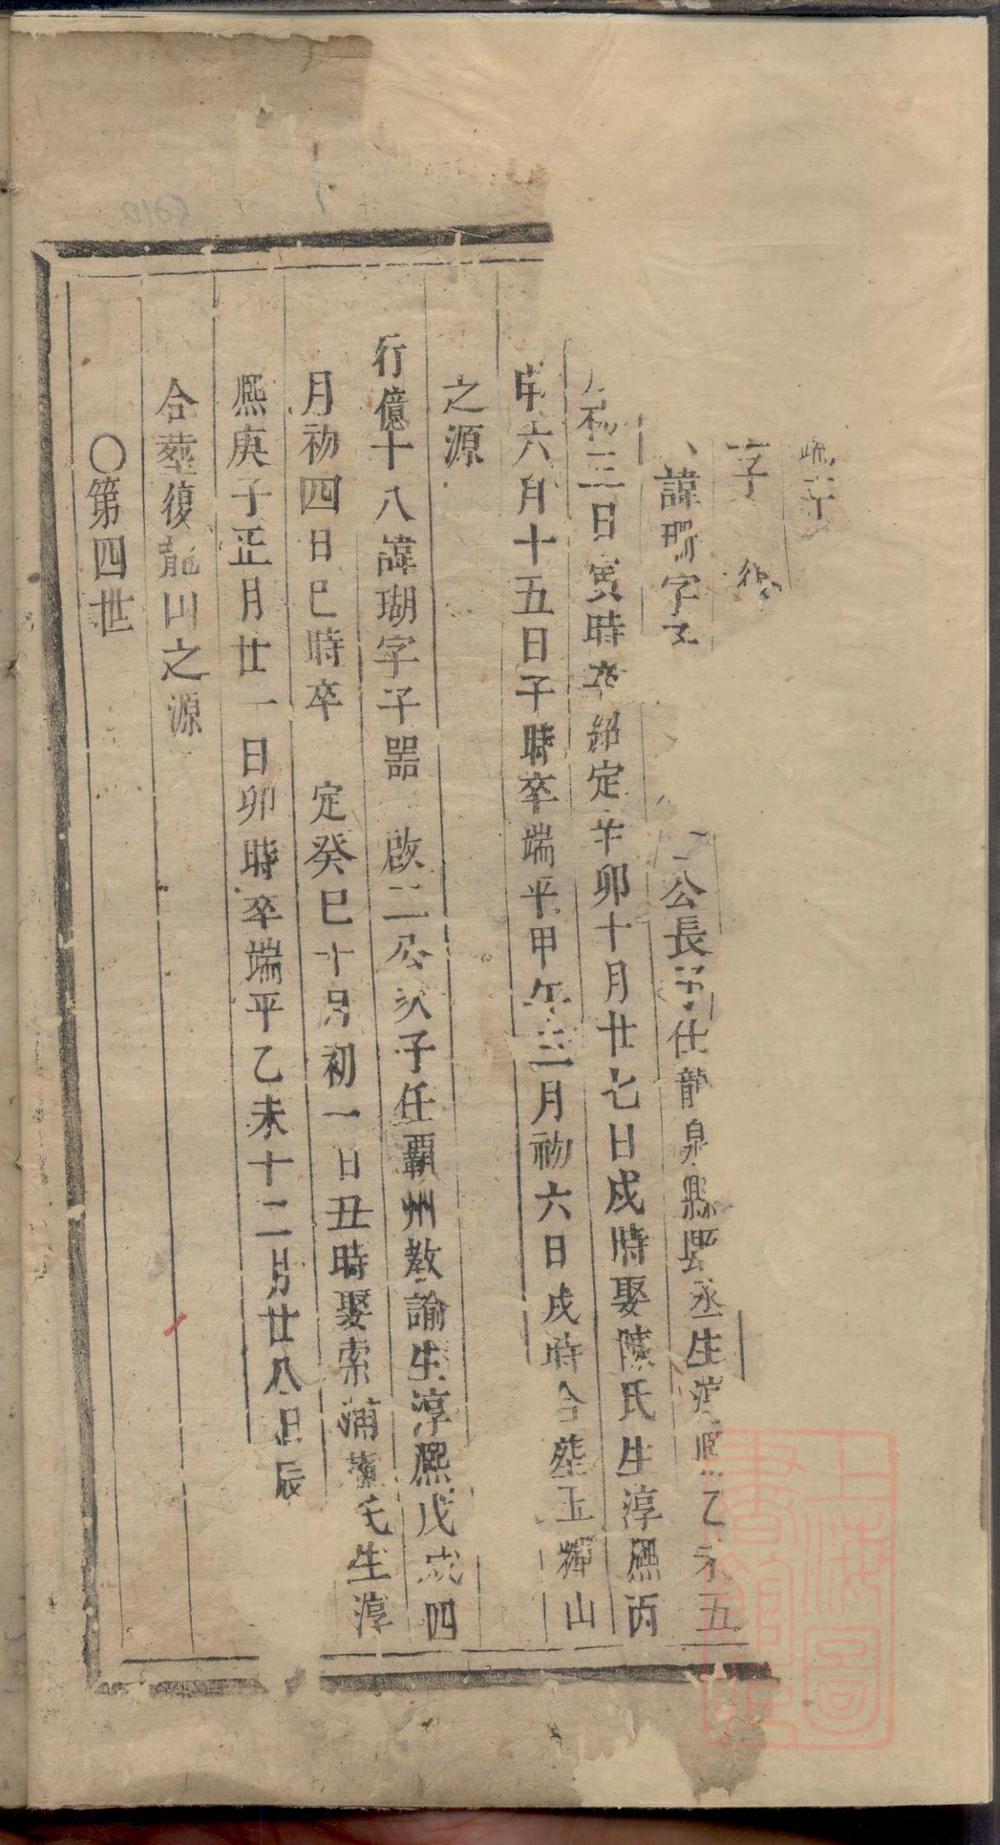 字
諱瑚字 公長子仕龍泉縣縣丞生淳熙乙未五
月初三日寅時卒紹定辛卯十月廿七日戌時娶陳氏生淳熙丙
申六月十五日子時卒端平甲午三月初六日戌時合塟玉 山
之源
行億十八諱瑚字子器 啟二公次子任覇州教諭生淳熙戊戌四
月初四日巳時卒 定癸巳十月初一日丑時娶索浦董氏生淳
熈庚子正月廿一日卯時卒端平乙未十二月廿八日辰
合塟復龍山之源
〇第四世
上海圖書館藏